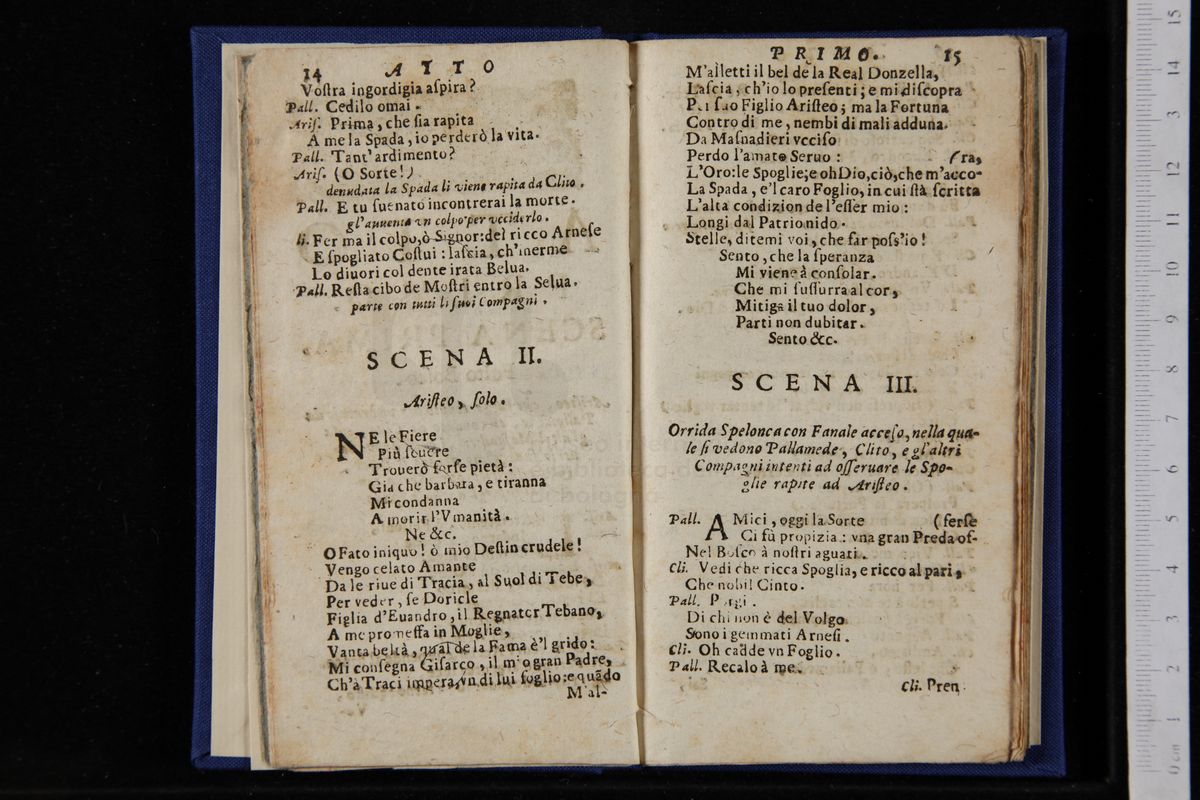 14 ATTO
Voſtra ingordigia aſpira?
Pall. Cedilo omai.
Ariſ. Prima, che ſia rapita
A me la Spada, io perderò la vita.
Pall. Tant' ardimento?
Ariſ. (O Sorte!)
denudata la Spada li viene rapita da Clito.
Pall. E tu ſuenato incontrerai la morte.
gl'auuenta vn colpo per vcciderlo.
li. Fer ma il colpo, ò Signor: del ricco Arneſe
E ſpogliato Coſtui: laſcia, ch'inerme
Lo diuori col dente irata Belua.
Pall. Reſta cibo de Moſtri entro la Selua.
parte con tutti li ſuoi Compagni.
SCENA II.
Ariſteo, ſolo.
NE le Fiere
Più ſeuere
Trouerò forſe pietà:
Gia che barbara, e tiranna
Mi condanna
A morir l'Vmanità.
Ne &c.
O Fato iniquo! ò mio Deſtin crudele!
Vengo celato Amante
Da le riue di Tracia, al Suol di Tebe,
Per veder, ſe Doricle
Figlia d'Euandro, il Regnator Tebano,
A me promeſſa in Moglie,
Vanta beltà, qual de la Fama è'l grido:
Mi conſegna Giſarco, il mio gran Padre,
Ch'à Traci impera, vn di lui foglio: e quãdo
M'al-
PRIMO. 15
M'alletti il bel de la Real Donzella,
Laſcia, ch'io lo preſenti; e mi diſcopra
Per ſuo Figlio Ariſteo; ma la Fortuna
Contro di me, nembi di mali adduna.
Da Maſnadieri vcciſo
Perdo l'amato Seruo: (ra,
L'Oro: le Spoglie; e oh Dio, ciò, che m'acco-
La Spada, e'l caro Foglio, in cui ſtà ſcritta
L'alta condizion de l'eſſer mio:
Longi dal Patrio nido.
Stelle, ditemi voi, che far poſs'io!
Sento, che la ſperanza
Mi viene à conſolar.
Che mi ſuſſurra al cor,
Mitiga il tuo dolor,
Parti non dubitar.
Sento &c.
SCENA III.
Orrida Spelonca con Fanale acceſo, nella qua-
le ſi vedono Pallamede, Clito, e gl'altri
Compagni intenti ad oſſeruare le Spo-
glie rapite ad Ariſteo.
Pall. AMici, oggi la Sorte (ferſe
Ci fù propizia: vna gran Preda of-
Nel Boſco à noſtri aguati.
Cli. Vedi che ricca Spoglia, e ricco al pari,
Che nobil Cinto.
Pall. Porgi.
Di chi non è del Volgo
Sono i gemmati Arneſi.
Cli. Oh cadde vn Foglio.
Pall. Recalo à me.
Cli. Pren